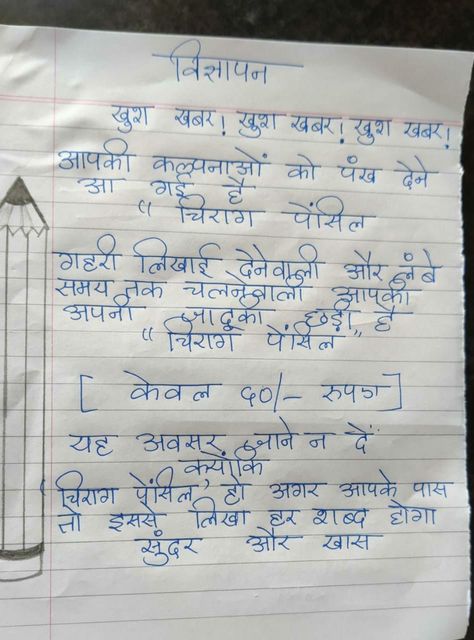 विज्ञापन
खुश खबर! खुश खबर! खुश खबर!
आपकी कल्पनाओं को पंख देने
आ गई है
“ चिराग पेंसिल
गहरी लिखाई देनेवाली और लंबे
समय तक चलनेवाली आपकी
अपनी जादुकी छड़ी है
“चिराग पेंसिल”
[ केवल ६०/- रुपए ]
यह अवसर जाने न दें
क्योंकि
चिराग पेंसिल, हो अगर आपके पास
तो इससे लिखा हर शब्द होगा
सुंदर और खास